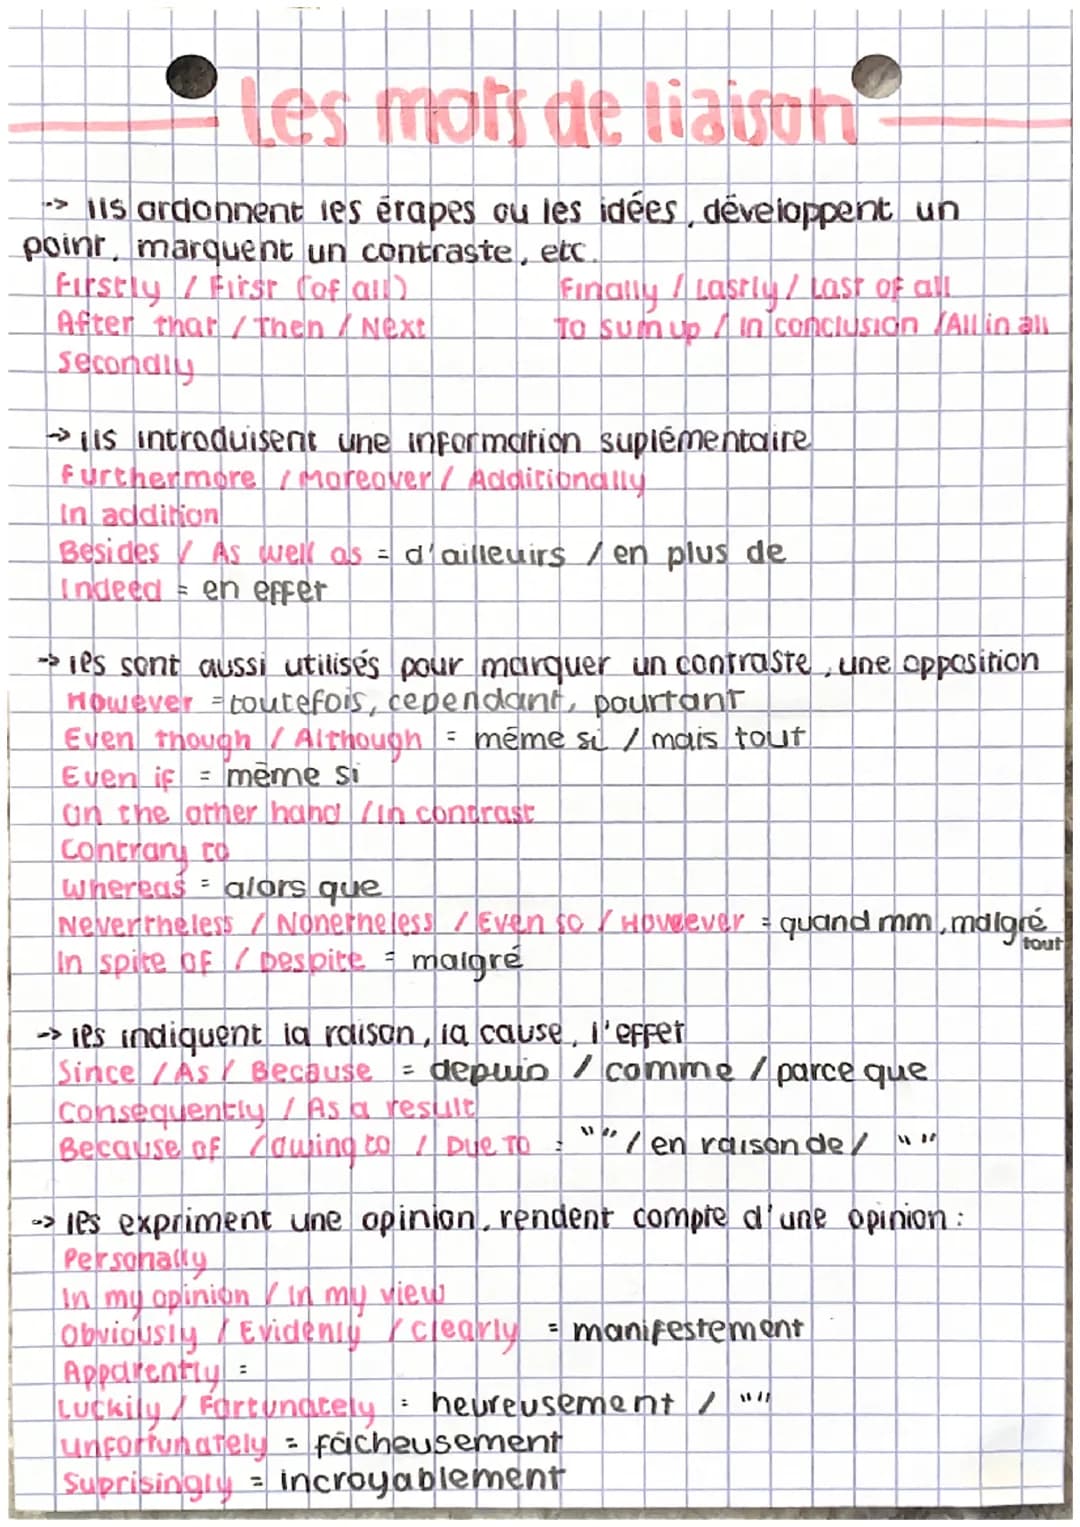 Les mots de liaison
-> ils ordonnent les étapes ou les idées, développent un
point, marquent un contraste, etc.
Firstly / First (of all)
After that / Then / Next
Secondly
Finally / Lastly / Last of all
To sum up / in conclusion / All in all
-> ils introduisent une information suplémentaire
Furthermore / Moreover / Additionally
In addition
Besides / As well as = d'ailleuirs / en plus de
Indeed = en effet
-> ies sont aussi utilisés pour marquer un contraste, une opposition
However = toutefois, cependant, pourtant
Even though / Although = même si / mais tout
Even if = même si
On the other hand / In contrast
Contrary to
Whereas = alors que
Nevertheless / Nonetheless / Even so / However = quand mm, malgré
tout
In spite of / Despite = malgré
-> ies indiquent la raison, la cause, l'effet
Since / As / Because = depuis / comme / parce que
Consequently / As a result
Because of / Owing to / Due To = "" / en raison de / ""
-> ies expriment une opinion, rendent compte d'une opinion :
Personally
In my opinion / in my view
Obviously / Evidenly / clearly = manifestement
Apparently =
Luckily / Fortunately = heureusement / ""
unfortunately = fâcheusement
Suprisingly = incroyablement